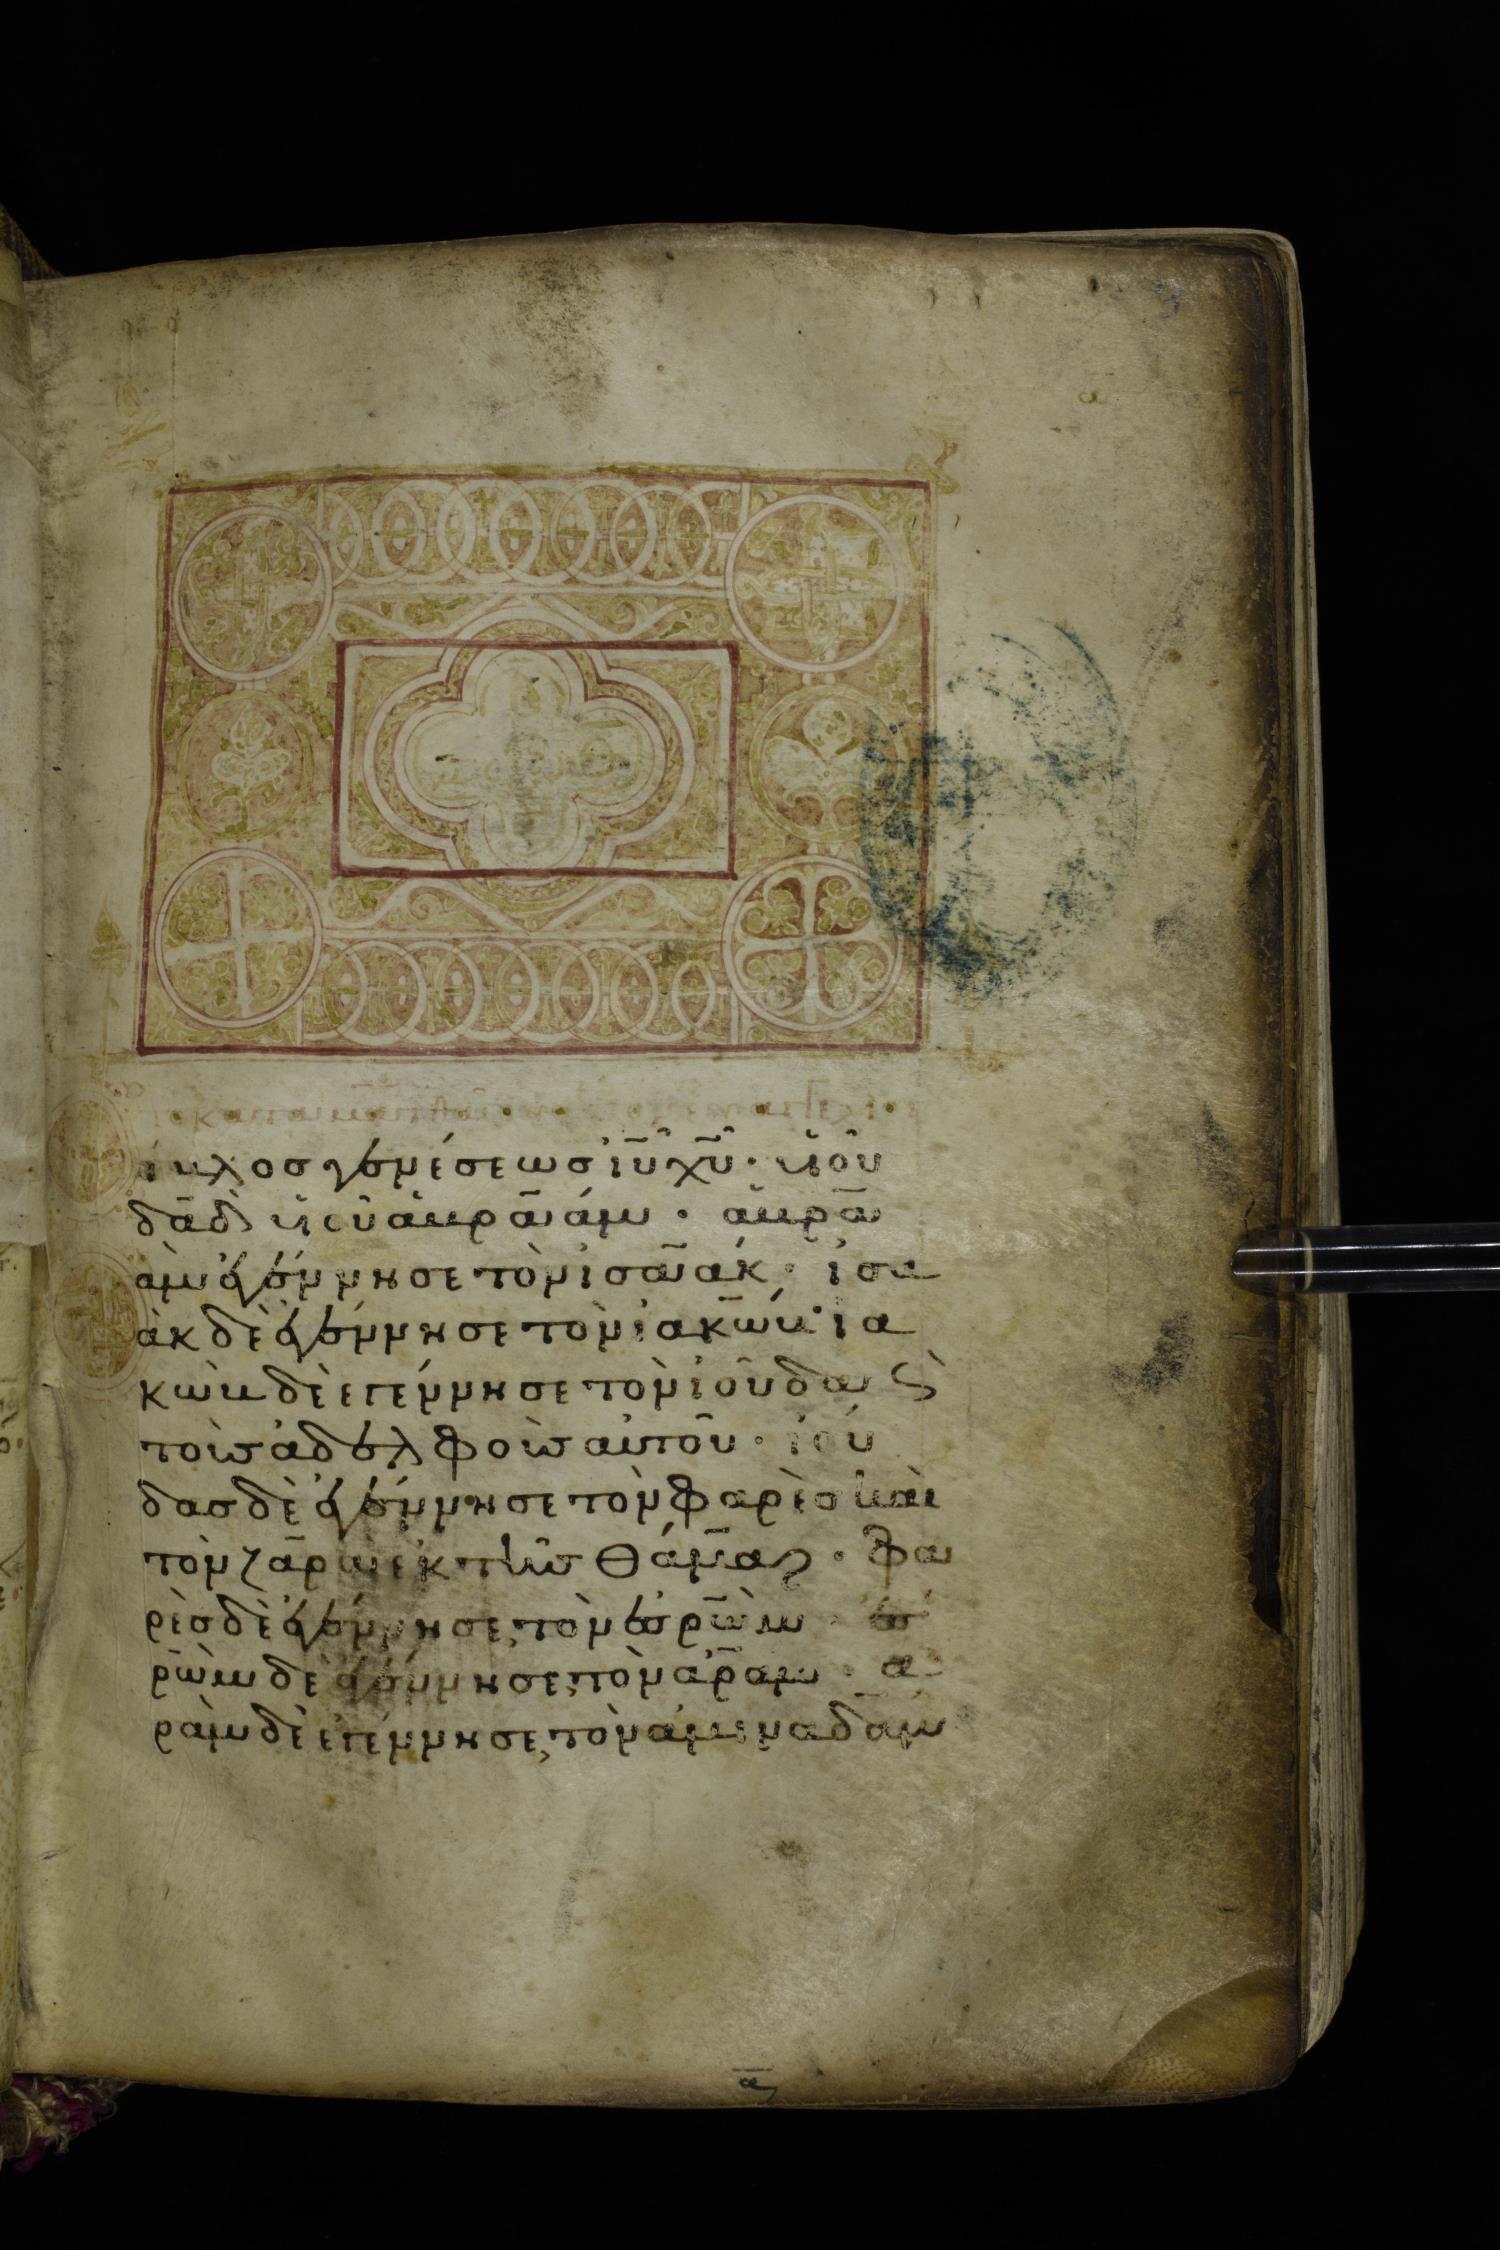 ίβλος γενέσεως ἰῦ χῦ· υἱοῦ
δαδ υἱοῦ ἀβραάμ· ἀβρα
ὰμ ἐγέννησε τὸν ἰσαάκ· ἰσα
ὰκ δὲ ἐγέννησε τὸν ἰακώβ· ἰα
κὼβ δὲ ἐγέννησε τὸν ἰούδαν ϗ
τοὺς ἀδελφοὺς αὐτοῦ· ἰού
δας δὲ ἐγέννησε τὸν φαρὲς καὶ
τὸν ζαρὰ ἐκ τῆς θάμαρ· φα
ρὲς δὲ ἐγέννησε τὸν ἐσρὼμ· ἐσ
ρὼμ δὲ ἐγέννησε τὸν ἀράμ· ἀ
ρὰμ δὲ ἐγέννησε τὸν ἀμιναδάμ
α